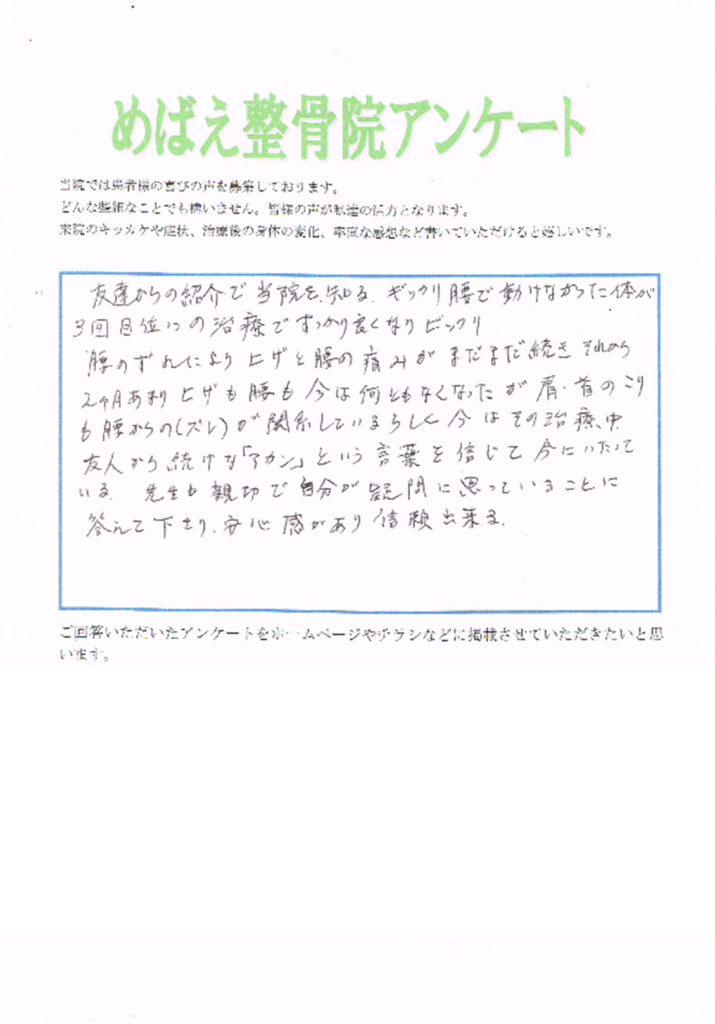 めばえ整骨院アンケート
当院では患者様の喜びの声を募集しております。
どんな些細なことでも構いません。皆様の声が私達の活力となります。
来院のキッカケや症状、治療後の身体の変化、率直な感想など書いていただけると嬉しいです。
友達からの紹介で当院を知る。ギックリ腰で動けなかった体が
3回目位の治療ですっかり良くなりビックリ
腰のずれにより上ゲと腰の痛みがまだまだ続き それから
2ヶ月あまり 上ゲも腰も今は何ともなくなったが肩・首のこり
も腰からの(ズレ)が関系しているらしく今はその治療中
友人から続けな「アカン」という言葉を信じて今にいたって
いる。先生も親切で自分が疑問に思っていることに
答えて下さり、安心感があり信頼出来る。
ご回答いただいたアンケートをホームページやチラシなどに掲載させていただきたいと思
います。